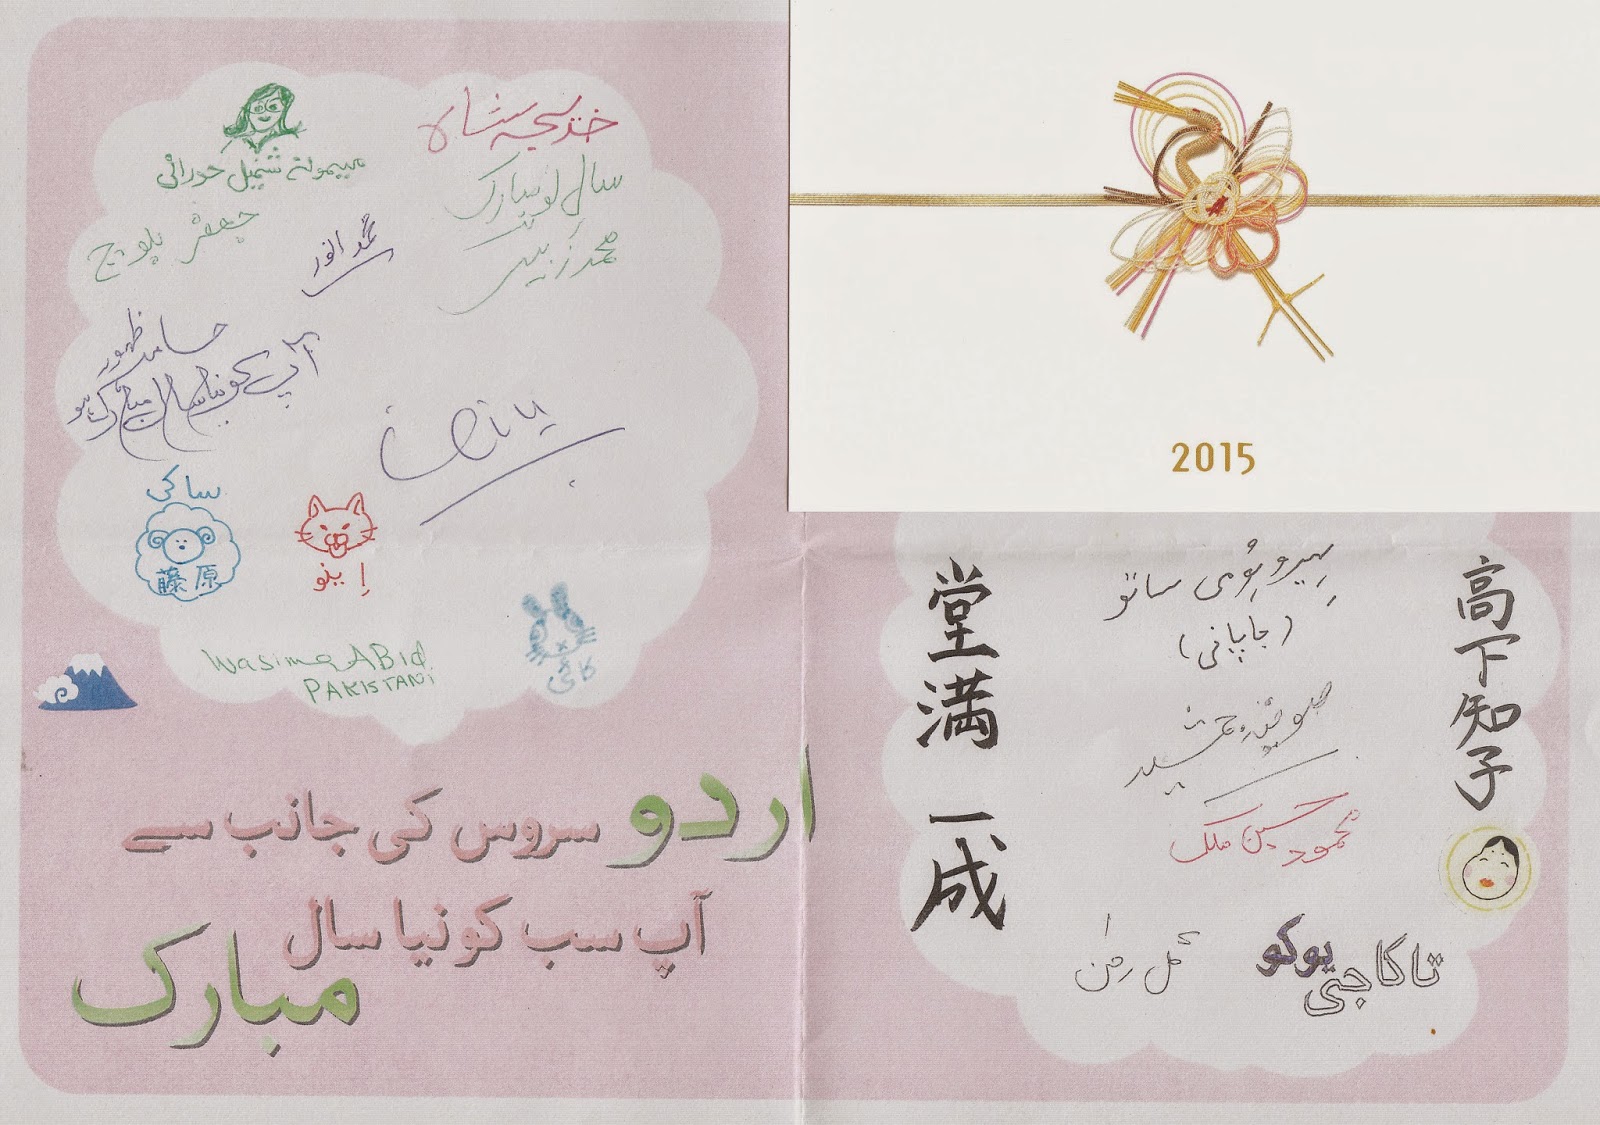 خدیجہ شاہ
میمونہ شنمیل حورانی
سالِ نو مبارک
محمد زبیر
جعفر بلوچ
محمد انور
ظہور
آپ کو نیا سال مبارک ہو
ساکی
藤原
اِینو
Wasima ABid
PAKISTANi
کائی
اردو سروس کی جانب سے
آپ سب کو نیا سال
مبارک
2015
堂満一成
高下知子
ہیروئومی ساتو
(جاپانی)
محمود حسین ملک
گل رحمٰن
تاکاجی
یوکو